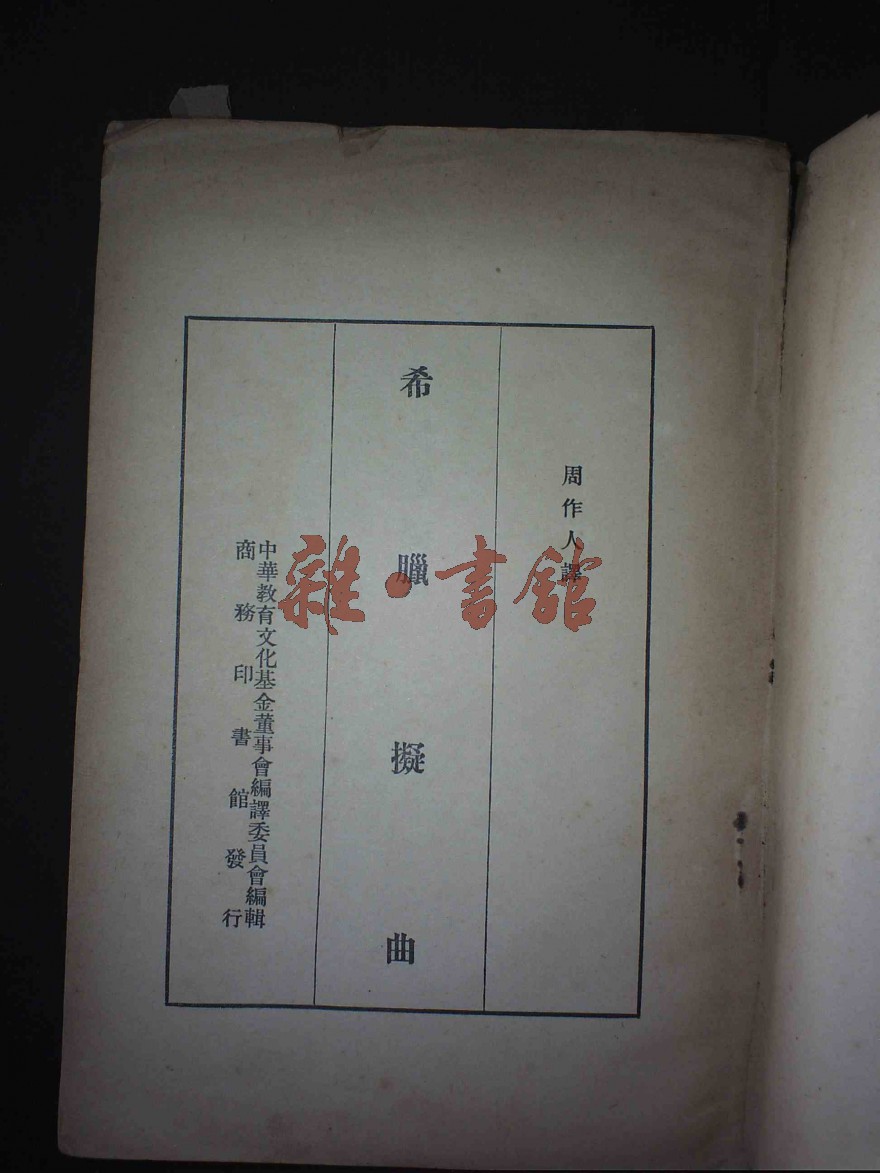 周作人譯
希臘擬曲
中華教育文化基金董事會編譯委員會編輯
商務印書館發行
雜·書館